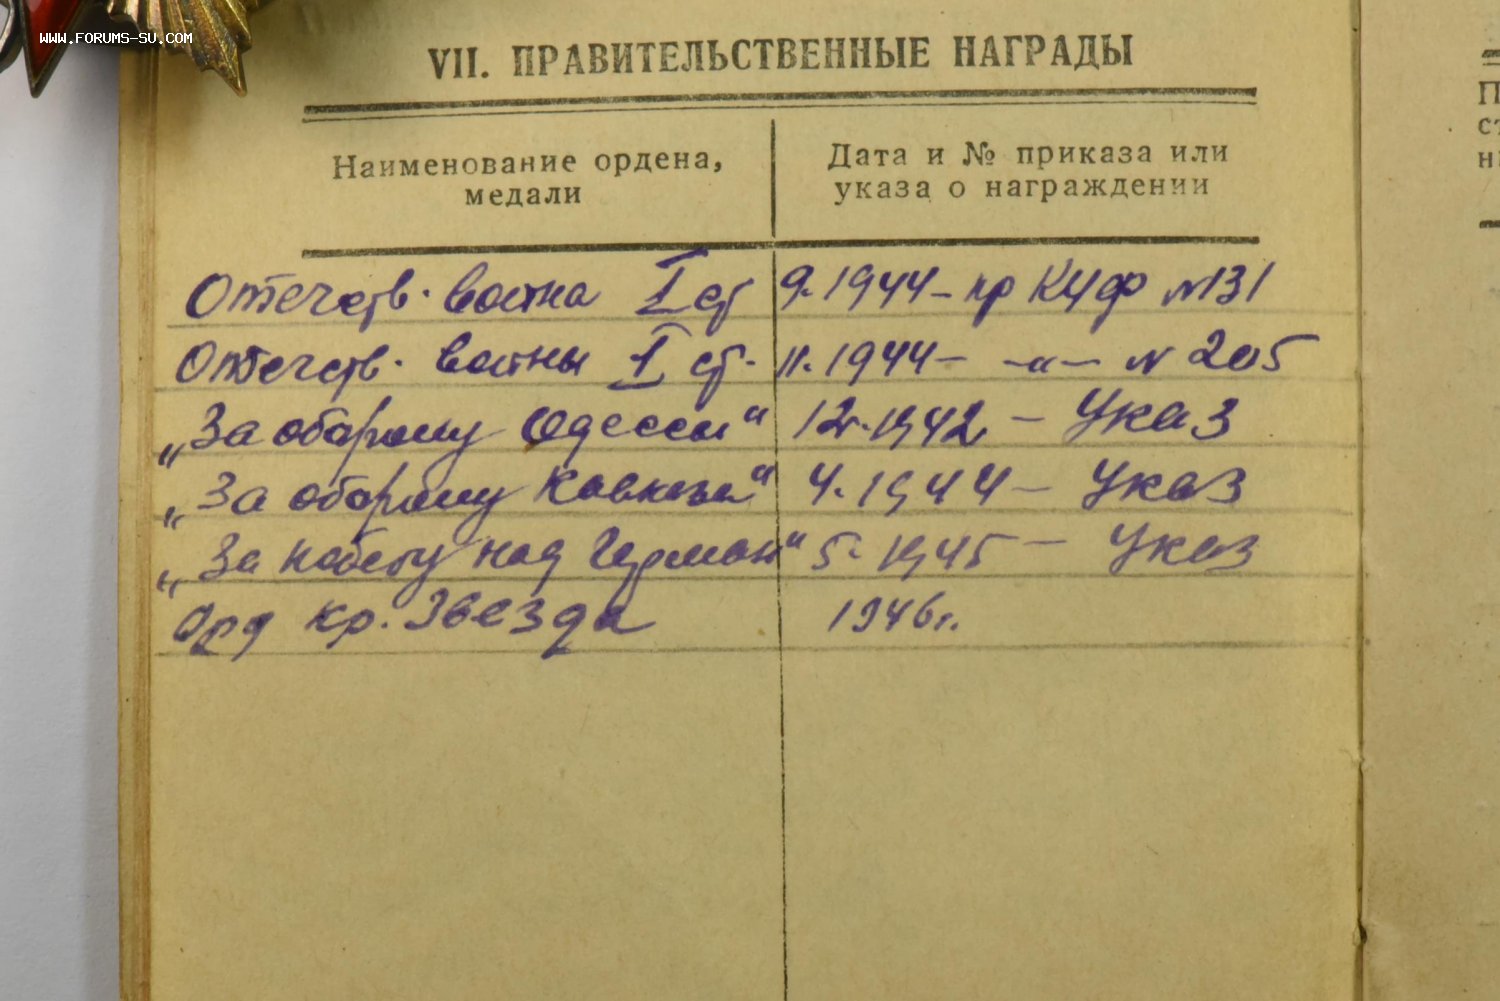 WWW.FORUMS-SU.COM
VII. ПРАВИТЕЛЬСТВЕННЫЕ НАГРАДЫ
Наименование ордена,
медали
Дата и № приказа или
указа о награждении
Отечств. война I ст 9.1944 - пр КЧФ №131
Отечств. войны I ст. 11.1944 - -"- № 205
„За оборону Одессы" 12.1942 - Указ
„За оборону Кавказа" 4.1944 - Указ
„За победу над Герман" 5.1945 - Указ
Орд Кр. Звезда 1946г.
П
ст
н